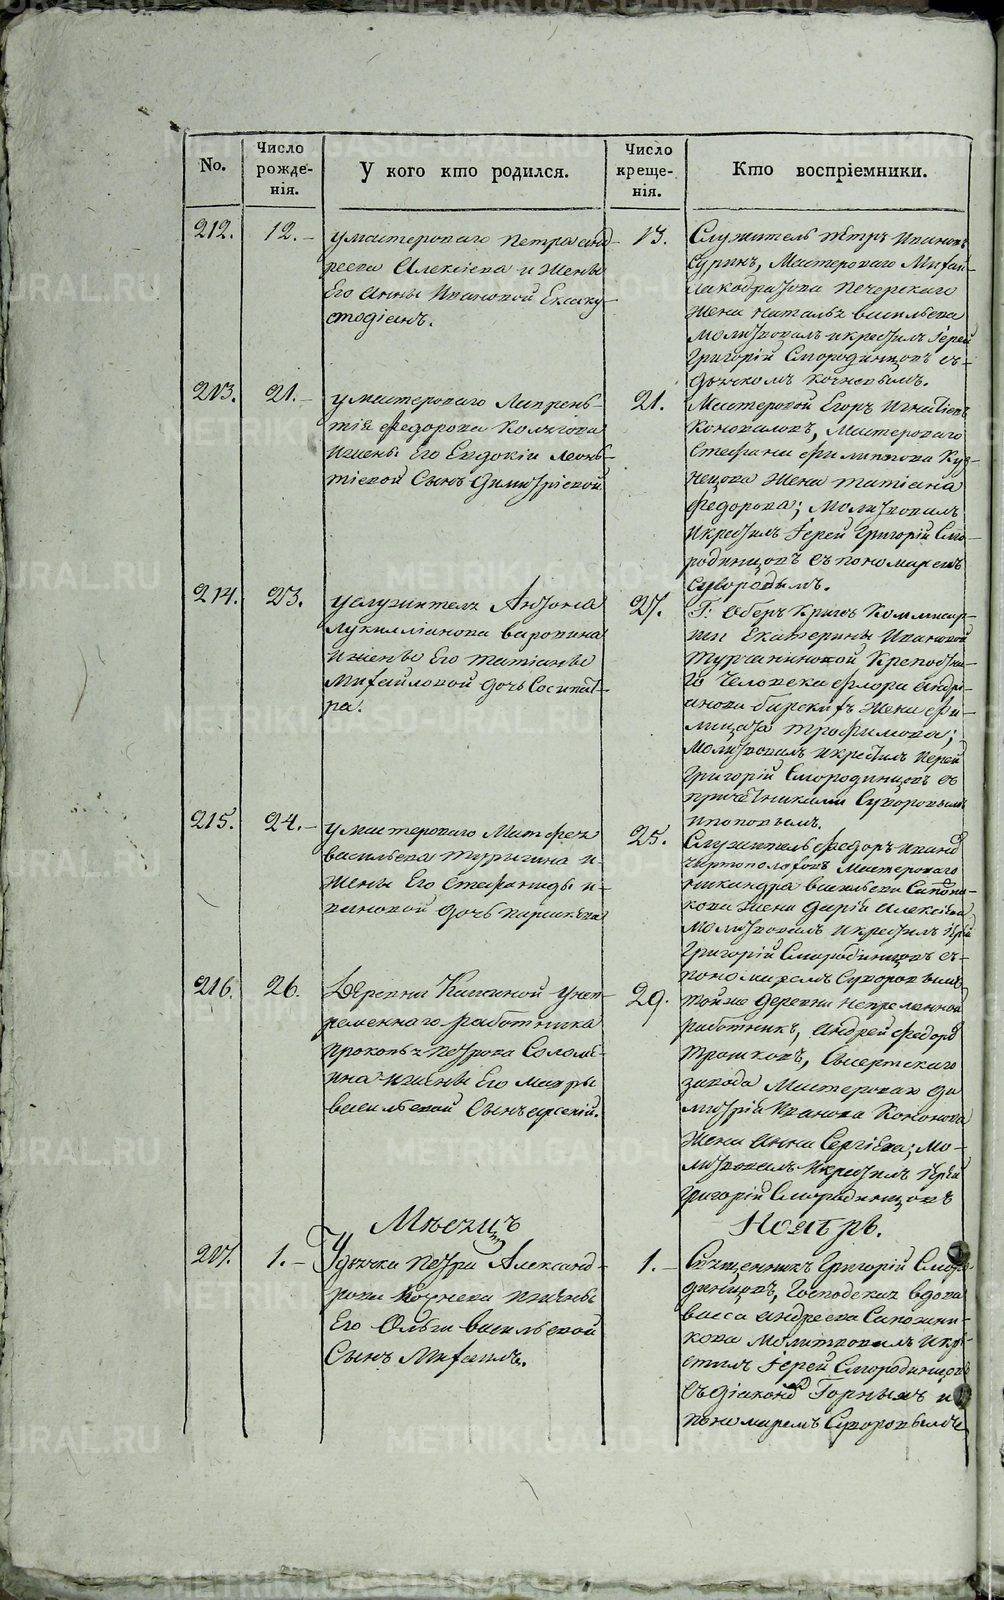 No.
Число рожде-нія.
У кого кто родился.
Число креще-нія.
Кто воспріемники.
212.
12.
умастероваго Петра анд-
реева Алексіева и жены
Его Анны Ивановой
13.
Служитель Петръ Ивановъ
Суринъ, Мастероваго Михай-
Печерскаго
жена Наталья васильева
Молитвовалъ икрестилъ Іерей
Григорій Смородинцовъ съ-
дьячкомъ
213.
21.
умастероваго Лаврень-
тія Федорова
ижены Его Евдокіи Леонь-
тіевой Сынъ Димитріевой
21.
Мастеровой Егоръ Игнатіевъ
Коноваловъ, Мастероваго
Стефана филиппова Куз-
нецова жена татіана
федорова; Молитвовалъ
икрестилъ Іерей Григорій Смо-
родинцовъ съ пономаремъ
Суворовымъ.
214.
23.
услужителя Антона
Лукилліанова
ижены Его татіаны
Михайловой дочь Сосипат-
ра.
27.
Г: Оберъ Кригсъ Коммисар-
ши Екатерины Ивановой
Турчаниновой Крепостна-
го человека флора андрі-
анова жена фи-
лицата трофимова;
Молитвовалъ икрестилъ Іерей
Григорій Смородинцовъ съ
причетниками Суворовымъ
ипоповымъ.
215.
24.
умастероваго Матфея
васильева и-
жены Его Стефаниды и-
вановой дочь параскева
25.
Служитель федоръ иванов
Мастероваго
никандра васильева Сапожни-
кова жена дарія алексіева
Молитвовалъ икрестилъ Іерей
Григорій Смородинцовъ съ-
пономаремъ Суворовымъ
216.
26.
Деревни унеп-
ременнаго работника
прокопья петрова
ижены Его мавры
васильевой Сынъ
29.
тойже деревни непременной
работникъ, андрей федоров
Сысертскаго
завода Мастероваго ди-
митрія Иванова Кононова
жена анна Сергіева; Мо-
литвовалъ икрестилъ Іерей
Григорій Смородинцовъ
Мѣсяцъ
Ноябрь.
217.
1.
Удьячка петра Александ-
рова ижены
Его Ольги васильевой
Сынъ Михаилъ.
1.
Священникъ Григорій Сморо-
динцовъ, Господская вдова
васса андреева Сапожни-
кова Молитвовалъ икре-
стилъ Іерей Смородинцовъ
съ діакономъ Горнымъ и
пономаремъ Суворовымъ
METRIKI.GASO-URAL.RU